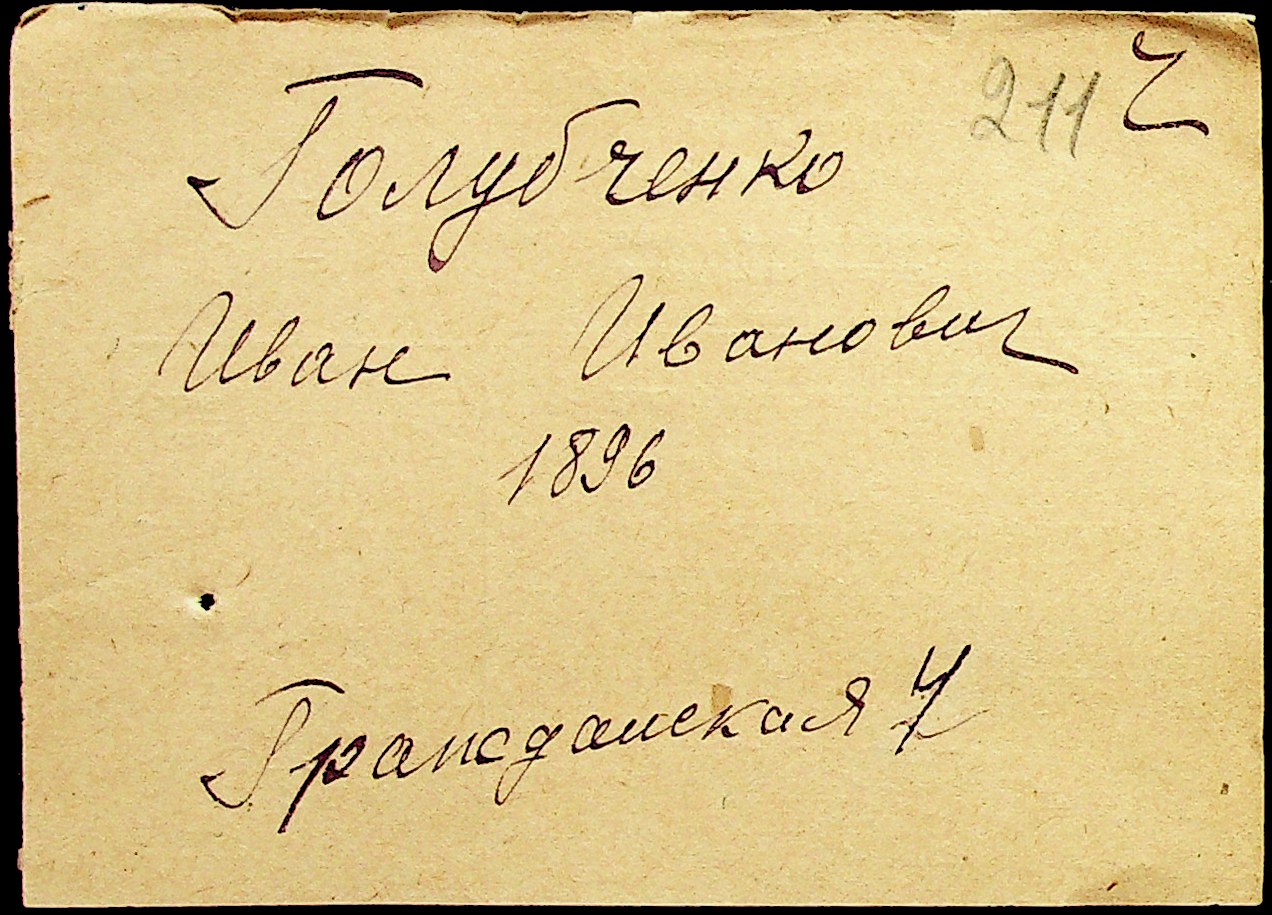 211 Ч
Голубченко
Иван Иванович
1896
Гражданская 7